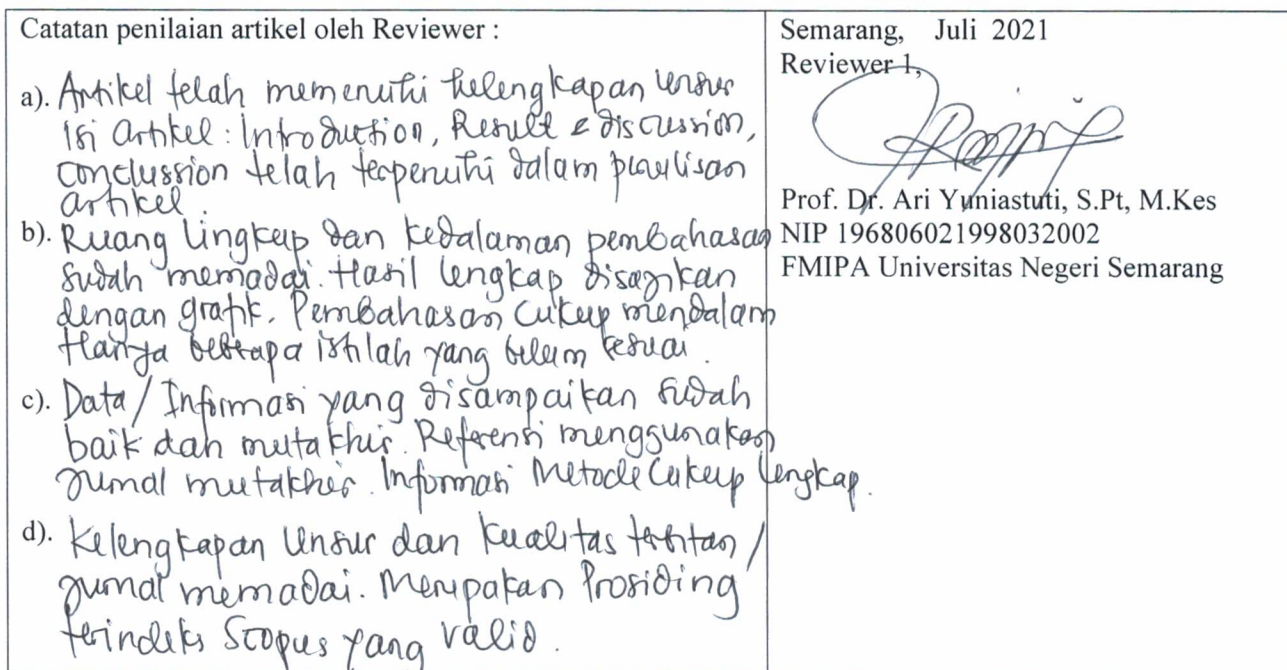 Catatan penilaian artikel oleh Reviewer :
a). Artikel telah memenuhi kelengkapan unsur
isi artikel : Introduction, Result & discussion,
conclussion telah terpenuhi dalam penulisan
artikel.
b). Ruang lingkup dan kedalaman pembahasan
sudah memadai. Hasil lengkap disajikan
dengan grafik. Pembahasan cukup mendalam
Hanya beberapa istilah yang belum sesuai.
c). Data / Informasi yang disampaikan sudah
baik dan mutakhir. Referensi menggunakan
jurnal mutakhir. Informasi Metode Cukup lengkap.
d). Kelengkapan Unsur dan kualitas terbitan /
jurnal memadai. Merupakan Prosiding
terindeks Scopus yang valid.
Semarang, Juli 2021
Reviewer 1,
Prof. Dr. Ari Yuniastuti, S.Pt, M.Kes
NIP 196806021998032002
FMIPA Universitas Negeri Semarang